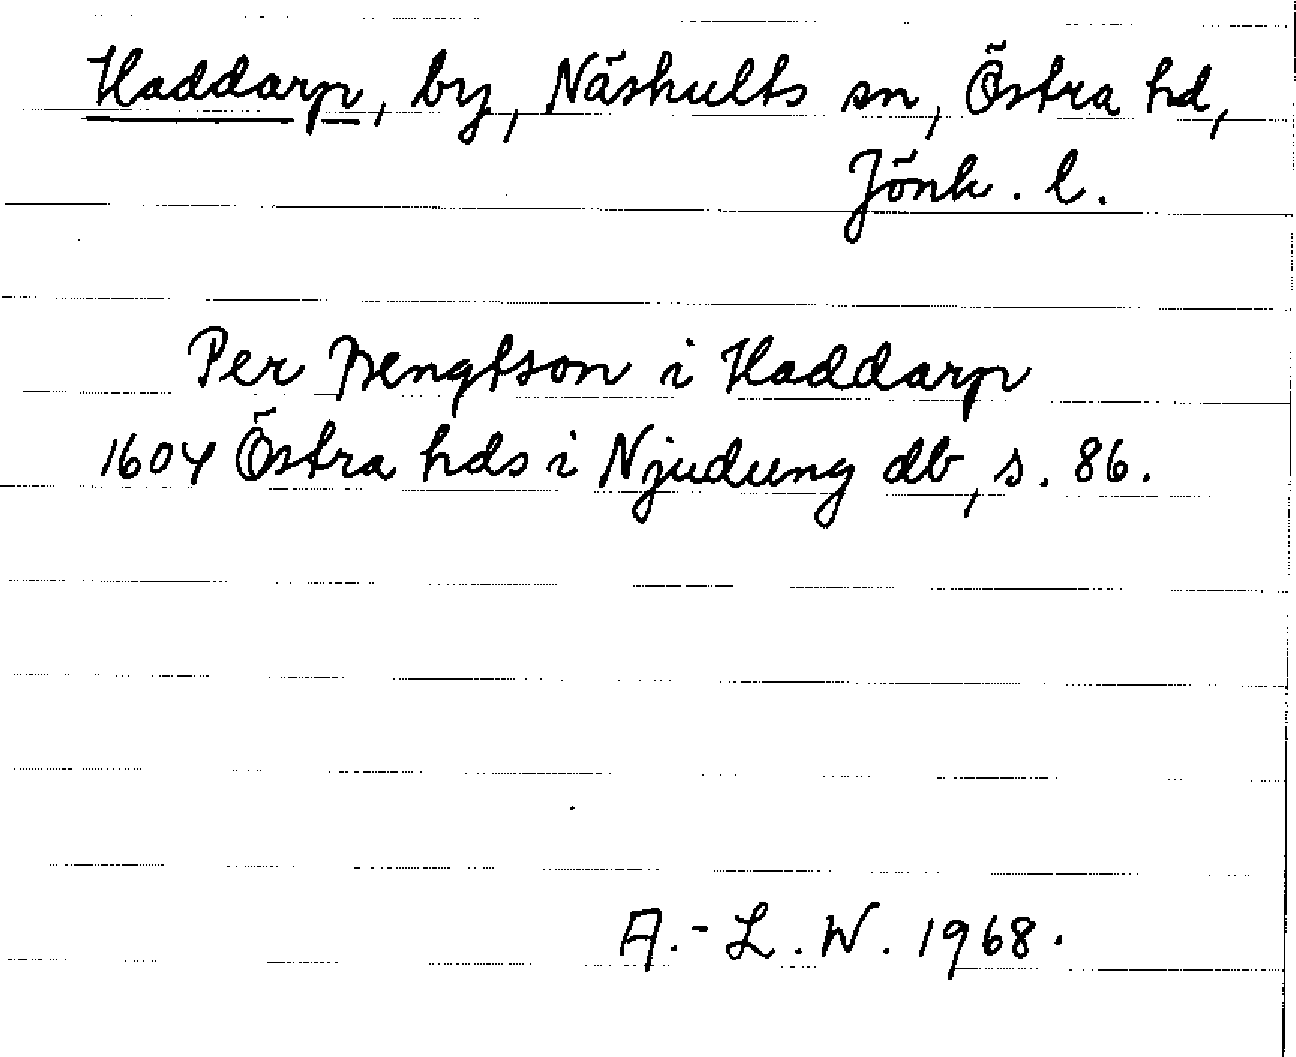 Haddarp, by, Näshults sn, Östra hd,
Jönk. l.
Per Bengtson i Haddarp
1604 Östra hds i Njudung db, s. 86.
A.-L. W. 1968.